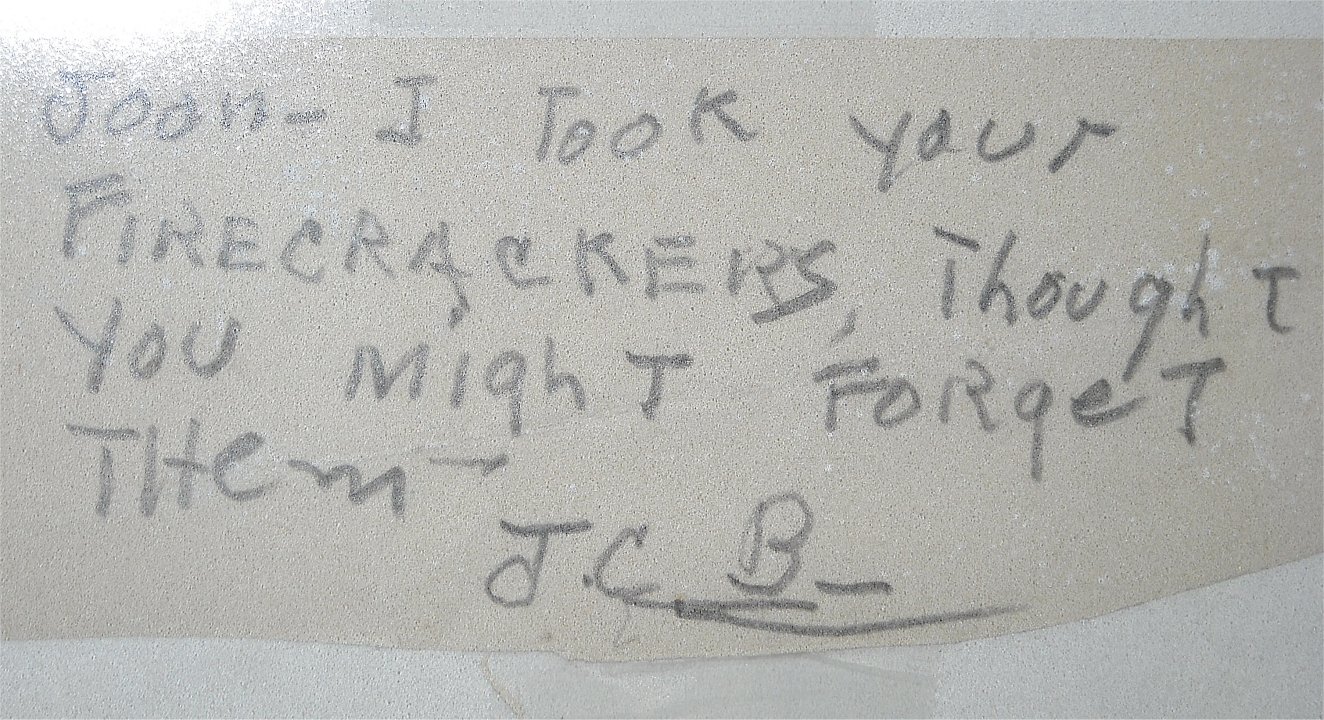 Joan- I Took your
FIRECRACKERS, Thought
You MighT FORgeT
THem-
J.C B-